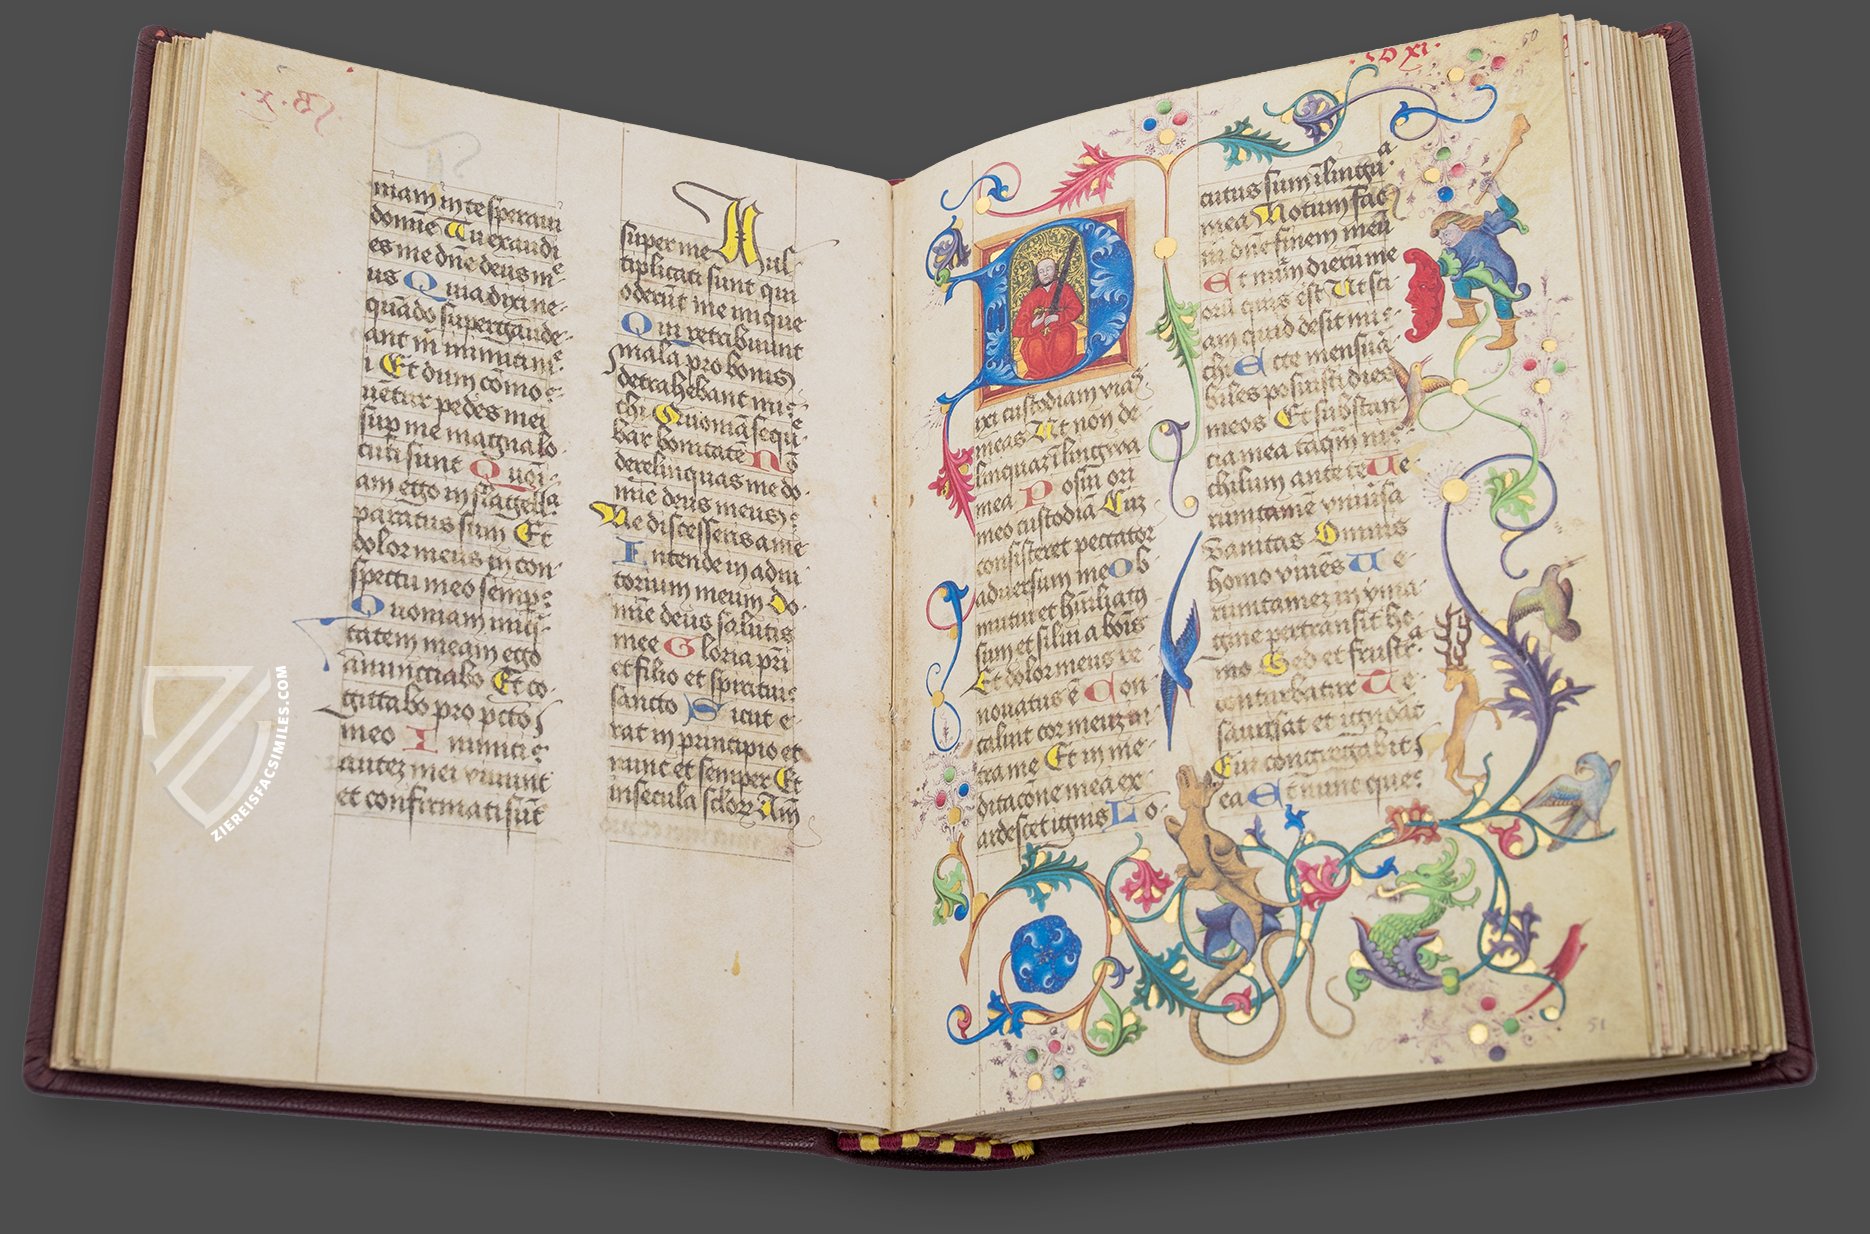 niam in te speraui
domīe Tu exaudi
es me dn̄e deus me
us Quia dixi ne-
quādo supergaude-
ant m̄ inimici me
i Et dum cōmo-
uētur pedes mei
sup me magna lo-
cuti sunt Quoī-
am ego in flagella
paratus sum Et
dolor meus in con-
spectu meo semp
Quoniam iniq̄-
tatem meam ego
annūcciabo Et co-
gitabo pro pctō
meo Inimici
autez mei viuunt
et confirmati sūt
super me Mul
tiplicati sunt qui
oderūt me inique
Qui retribuunt
mala pro bonis
detrahebant mi-
chi Quoniā sequ-
bar bonitatē Nō
derelinquas me do-
mīe deus meus
Ne discesseris a me
Intende in adiu
torium meum Do-
mīe deus salutis
mee Gloria pr̄i
et filio et spiritui
sancto Sicut e-
rat in principio et
nunc et semper Et
in secula sclōrz Am̄
XI.
50
Dixi custodiam vias
meas Ut non de-
linquaz ī lingwa
mea Posui ori
meo custodiā Cuz
consisteret peccator
adversum me Ob
mutui et hūiliatus
sum et silui a bōis
Et dolor meus re-
nouatus ē Con
caluit cor meuz in
tra me Et in me-
ditacōne mea ex-
ardescet ignis Lo-
cutus sum ī lingua
mea Notum fac
m̄ dn̄e finem meū
Et nūm dieruz me
oru quis est Ut sci
am quid desit mi-
chi Ecce mensūa-
biles posuisti dies
meos Et substan
cia mea taq̄m ni-
chilum ante te Ue
rumtamē vniūsa
Vanitas Omnis
homo viuēs Ue-
rumtamez in yma-
gine pertransit ho-
mo Sed et frustra
conturbatur Te-
saurisat et ignorat
Cui congregabit
ea Et nunc que
51
ZIEREISFACSIMILES.COM